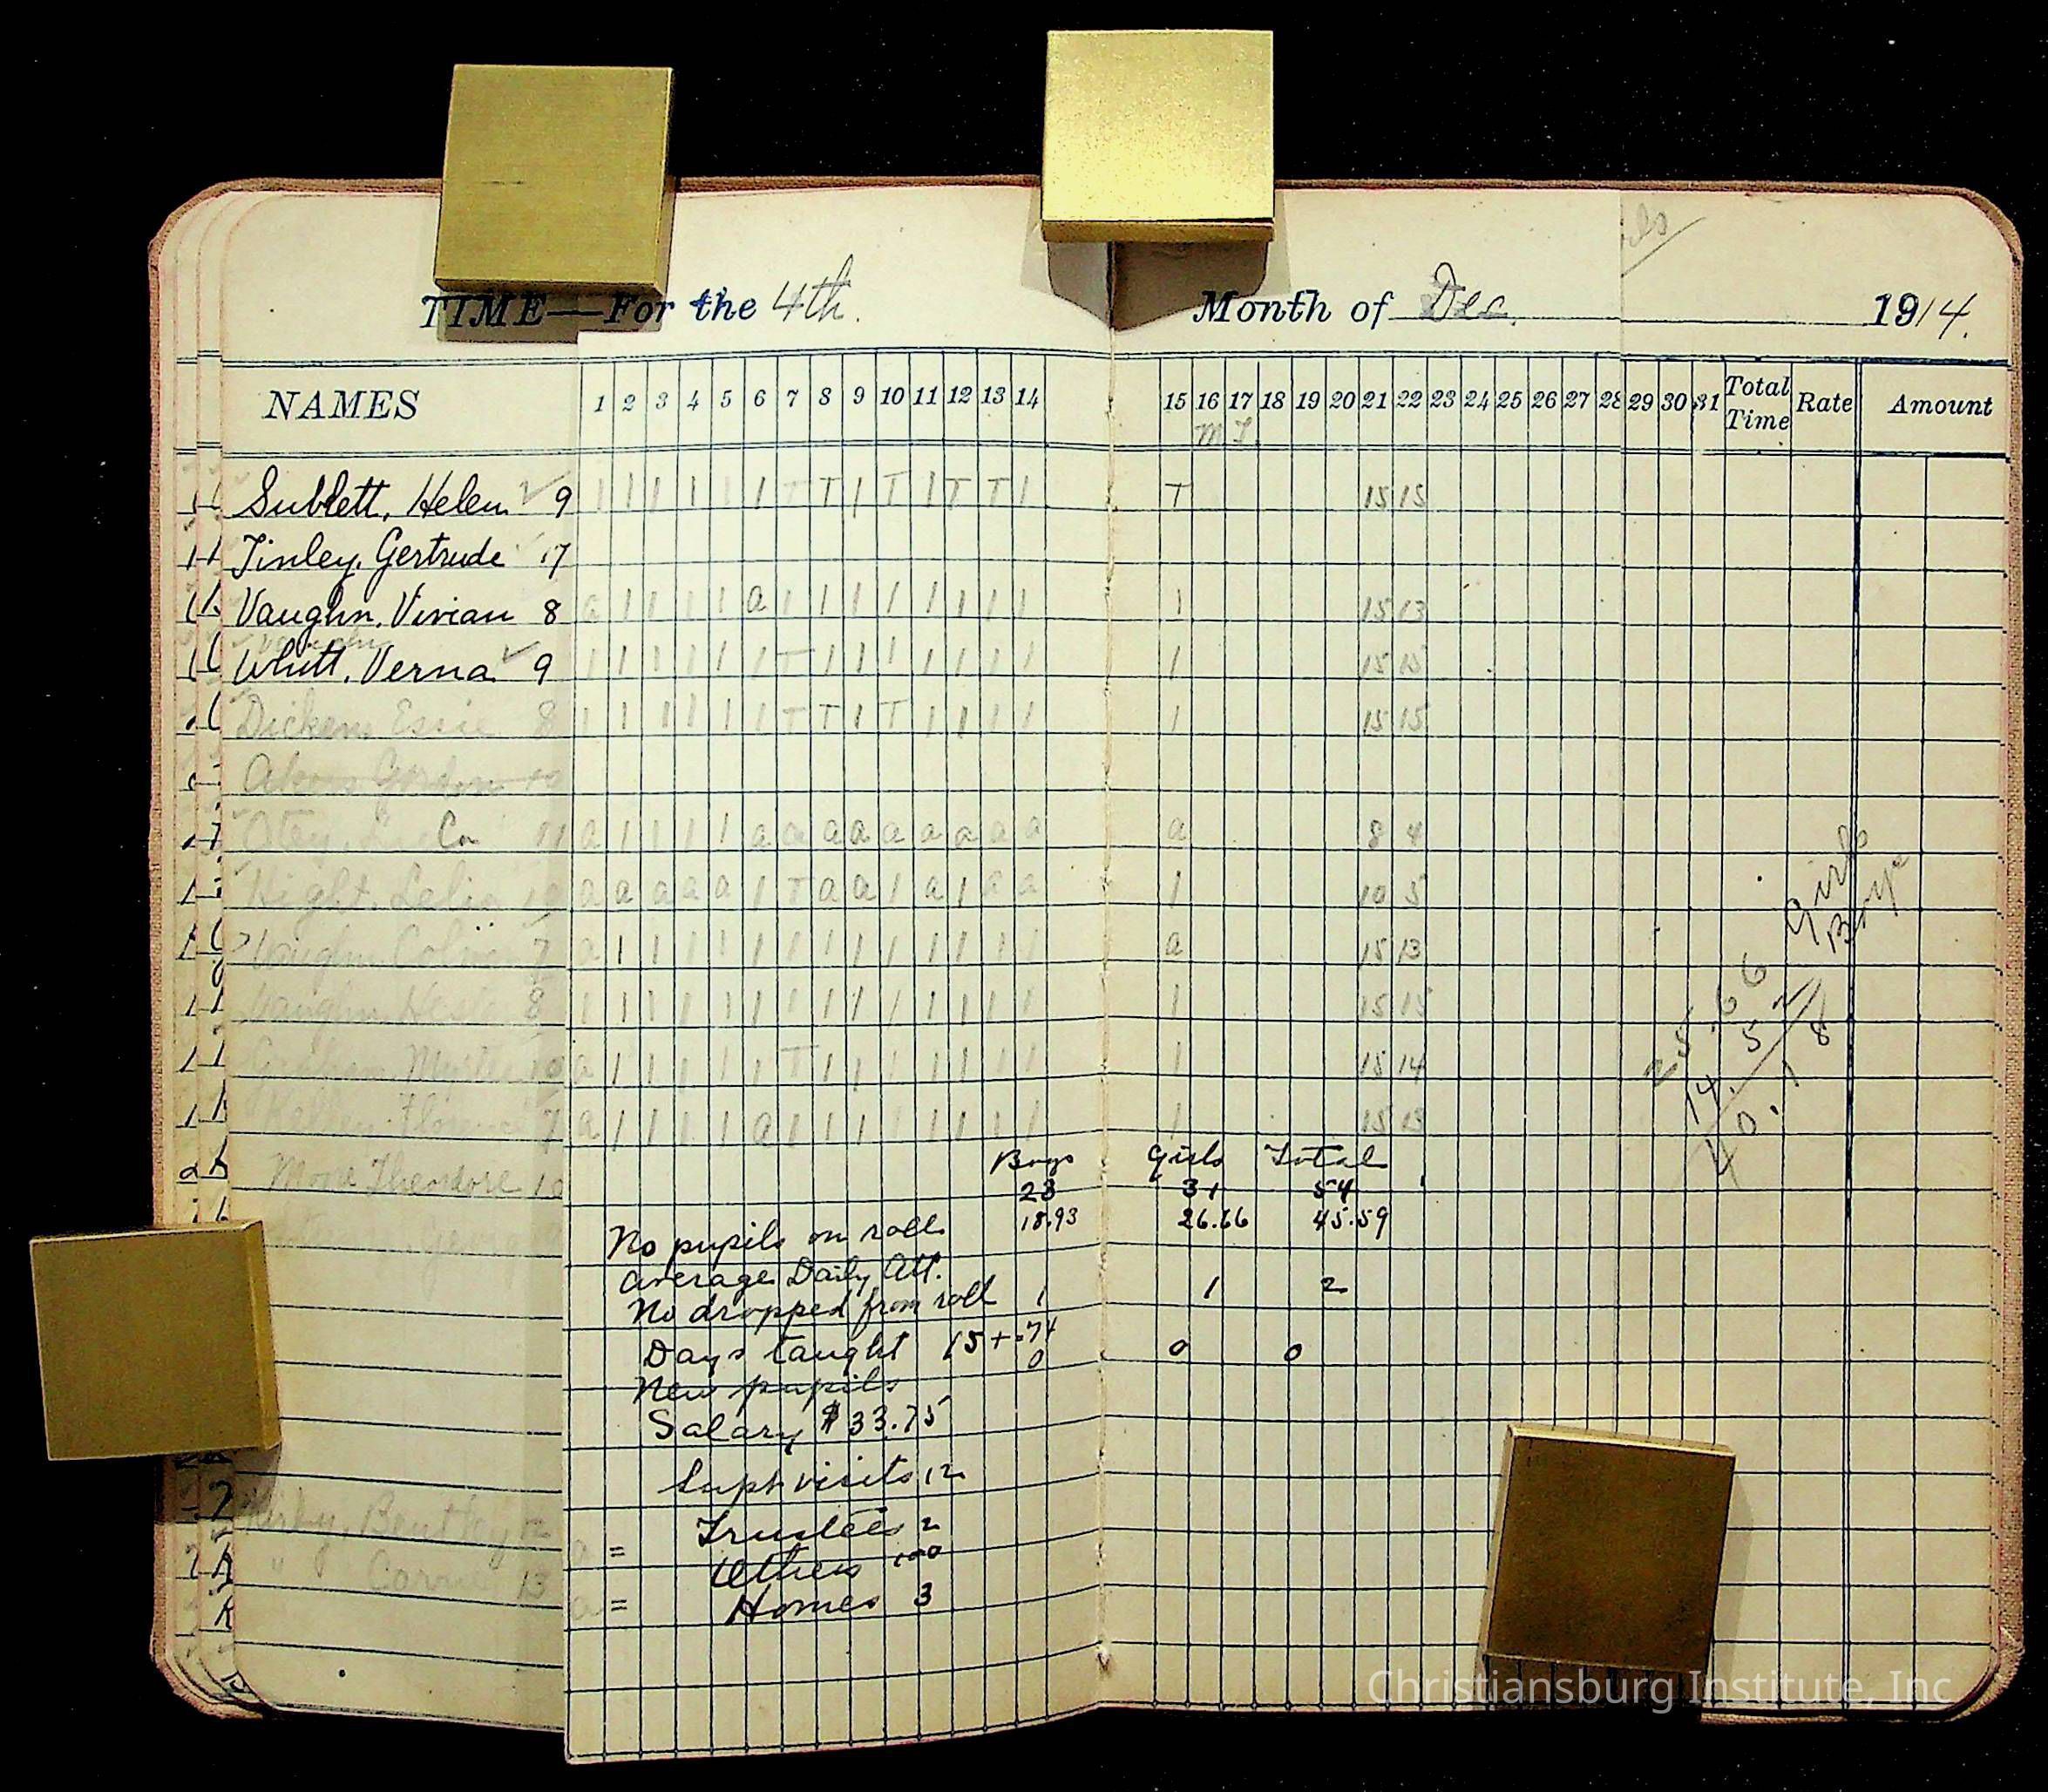 TIME—For the 4th. Month of Dec. 1914.
NAMES 1 2 3 4 5 6 7 8 9 10 11 12 13 14 15 16 17 18 19 20 21 22 23 24 25 26 27 28 29 30 31 Total Time Rate Amount
M T.
Sublett, Helen 9 1 1 1 1 1 1 T T 1 T 1 T T 1 T 15 15
Tinley, Gertrude 17
Vaughn, Vivian 8 a 1 1 1 1 a 1 1 1 1 1 1 1 1 1 15 13
Whitt, Verna 9 1 1 1 1 1 1 T 1 1 1 1 1 1 1 1 15 15
Dickem, Essie 8 1 1 1 1 1 1 T T 1 T 1 1 1 1 1 15 15
Akers Gordon
Otey, Co 11 a 1 1 1 1 a a a a a a a a a a 8 4
Hight, Lelia 10 a a a a a 1 T a a 1 a 1 a a 1 10 5
Vaughn 7 a 1 1 1 1 1 1 1 1 1 1 1 1 1 a 15 13
Vaughn 8 1 1 1 1 1 1 1 1 1 1 1 1 1 1 1 15 15
Graham, Myrtle 10 a 1 1 1 1 1 T 1 1 1 1 1 1 1 1 15 14
Florence 7 a 1 1 1 1 a 1 1 1 1 1 1 1 1 1 15 13
Boys Girls Total
Moore Theodore 10 23 31 54
No pupils on roll 18.93 26.66 45.59
Average Daily Att.
No dropped from roll 1 1 2
Days taught 15 + .74
New pupils 0 0 0
Salary $33.75
Supt visits 12
Kirby, Bentley 12 a = Trustees 2
Others 100
" Corrie 13 a = Homes 3
25.66 Girls
14.52 Boys
40.18
Christiansburg Institute, Inc